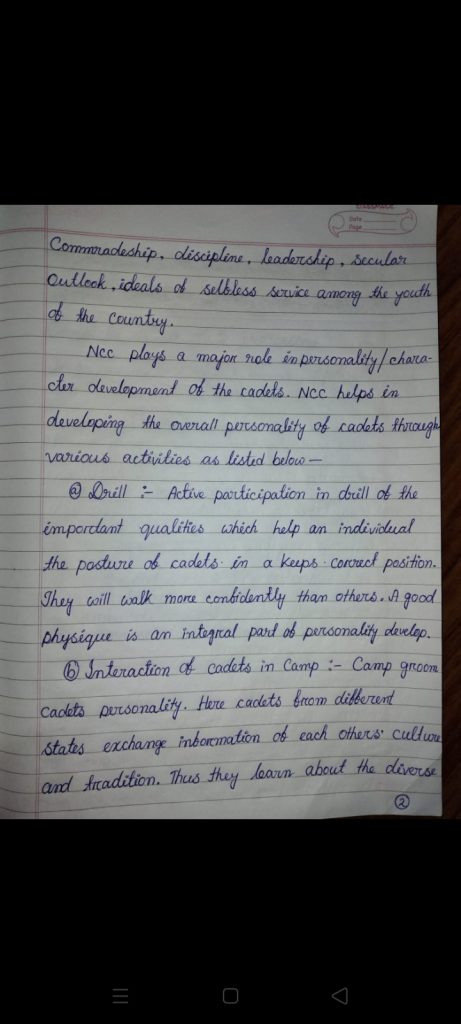 Date
Page
Commradeship, discipline, leadership, secular
Outlook, ideals of selbless service among the youth
of the country.
Ncc plays a major role in personality/chara-
cter development of the cadets. NCC helps in
developing the overall personality of cadets through
various activities as listed below —
(a) Drill :- Active participation in drill of the
impordant qualities which help an individual
the posture of cadets. in a keeps correct position.
They will walk more confidently than others. A good
physique is an integral part of personality develop.
(b) Interaction of cadets in Camp :- Camp groom
cadets personality. Here cadets from different
states exchange information of each others' culture
and tradition. Thus they learn about the diverse
2